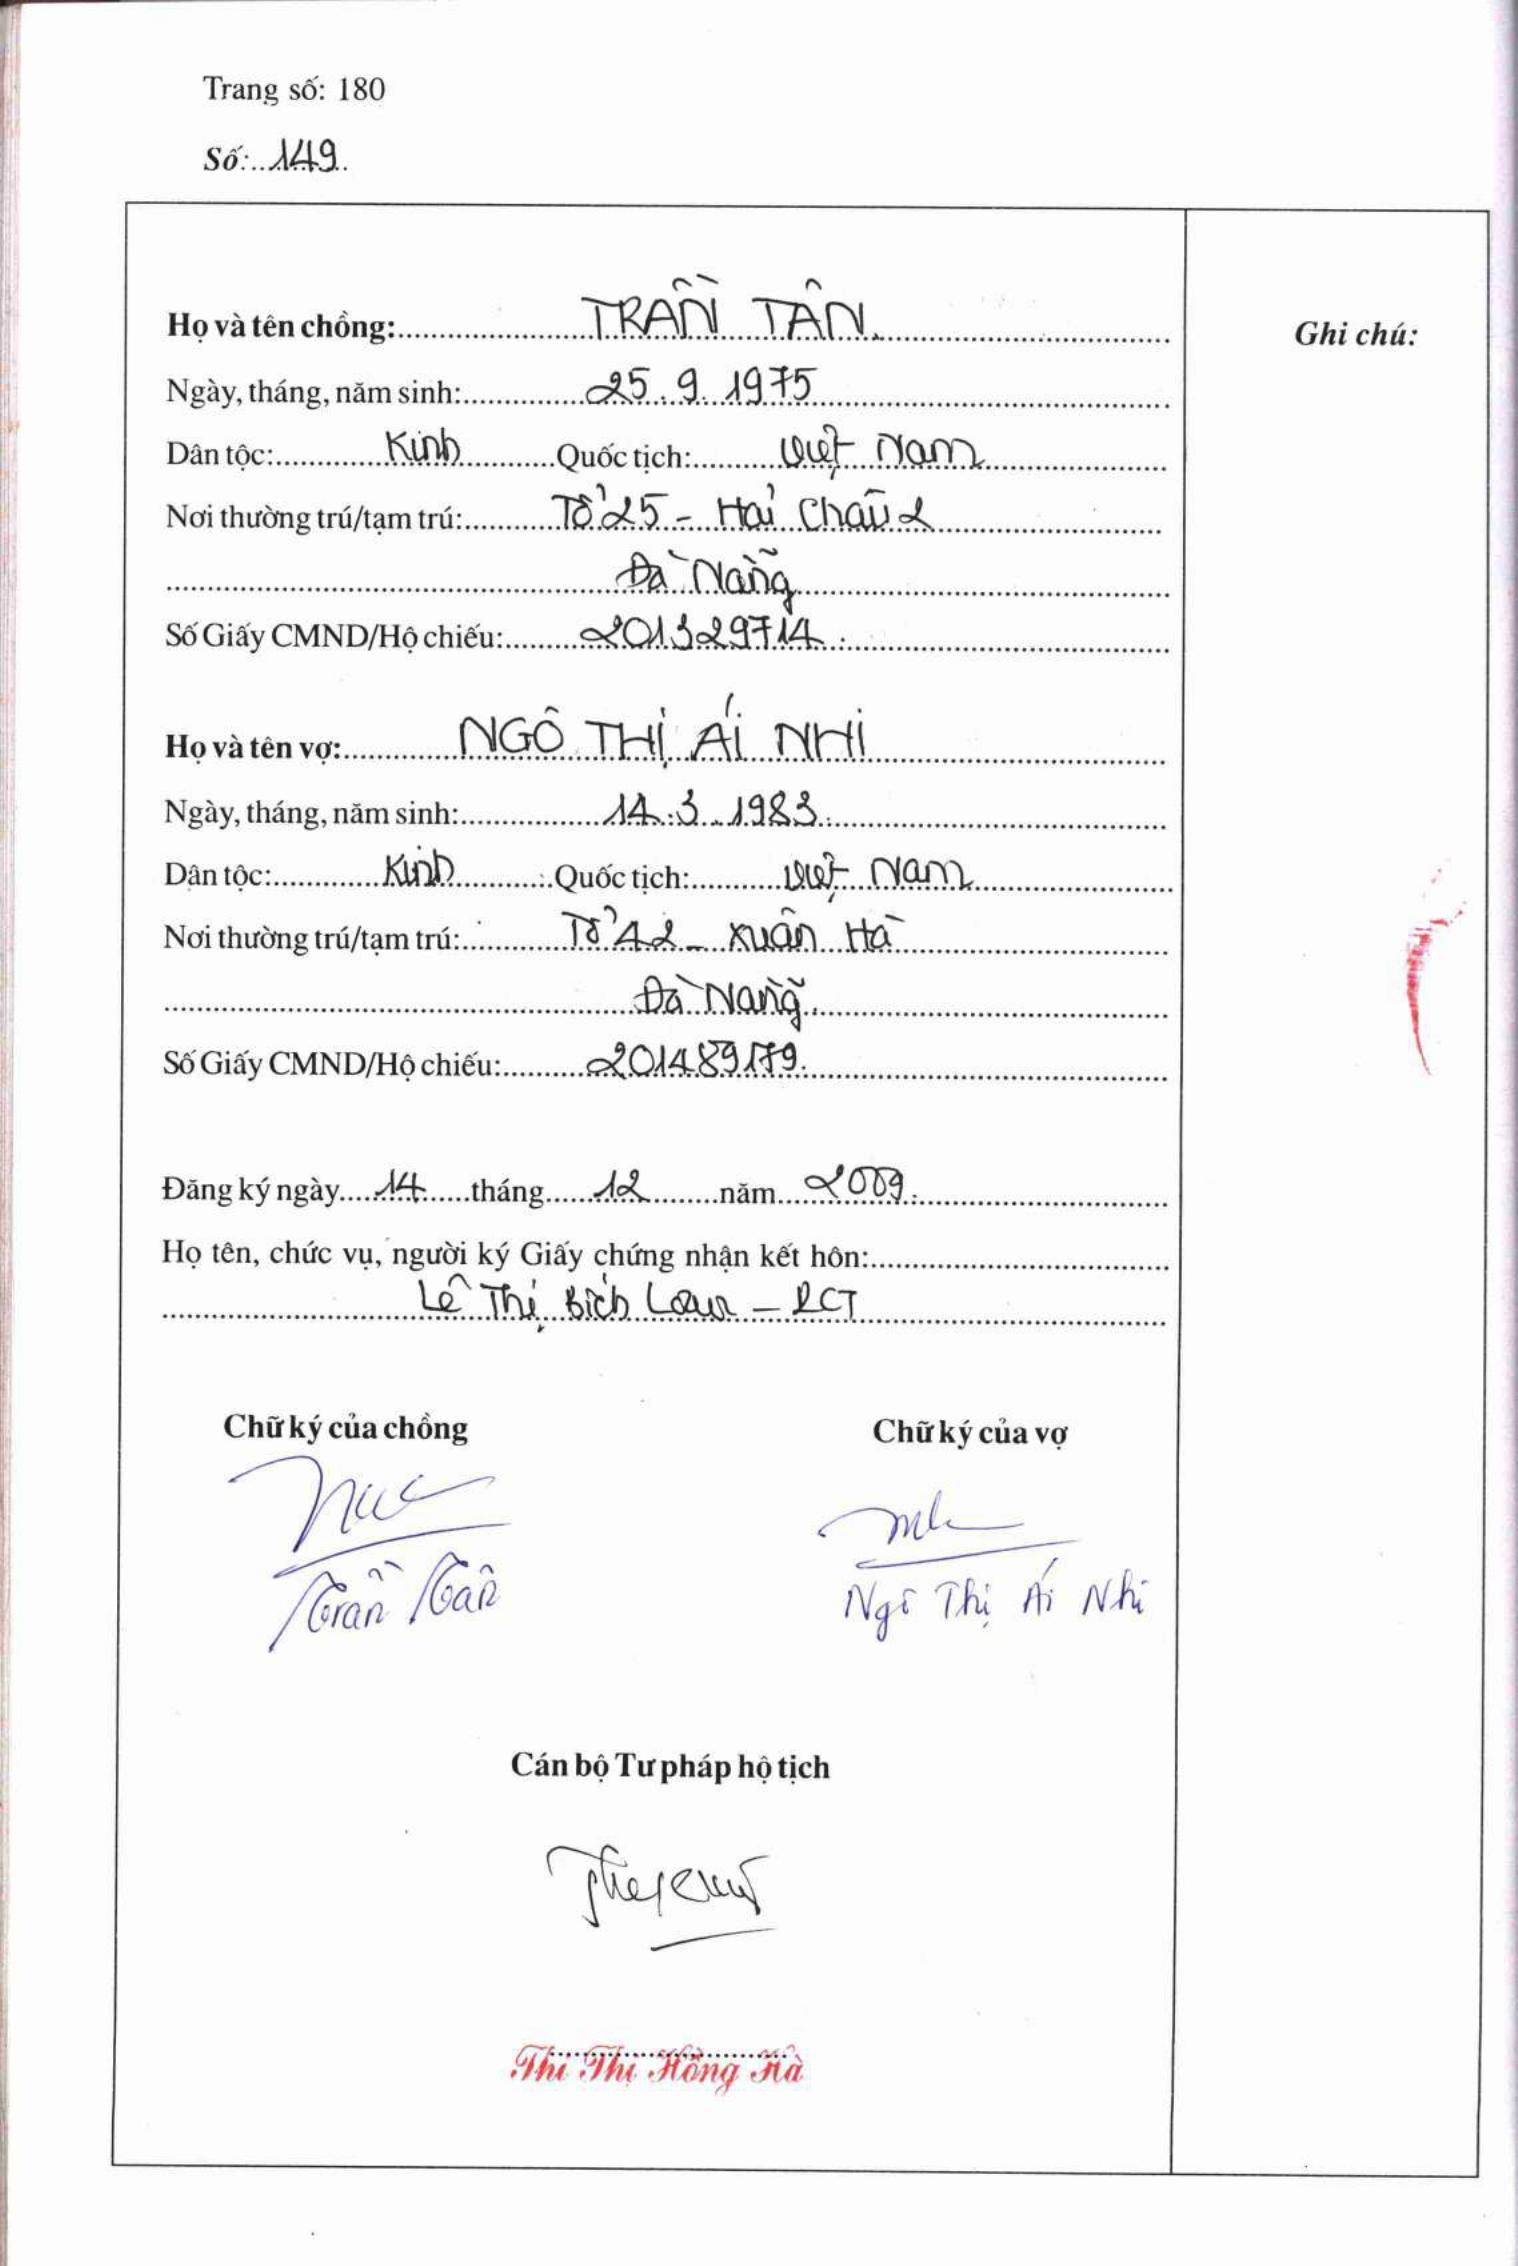 Trang số: 180
Số: 149
Họ và tên chồng: TRẦN TÂN
Ghi chú:
Ngày, tháng, năm sinh: 25.9.1975
Dân tộc: Kinh Quốc tịch: Việt Nam
Nơi thường trú/tạm trú: Tổ 25 - Hải Châu 2
Đà Nẵng
Số Giấy CMND/Hộ chiếu: 201329714
Họ và tên vợ: NGÔ THỊ ÁI NHI
Ngày, tháng, năm sinh: 14.3.1983
Dân tộc: Kinh Quốc tịch: Việt Nam
Nơi thường trú/tạm trú: Tổ 42 - Xuân Hà
Đà Nẵng
Số Giấy CMND/Hộ chiếu: 201489179
Đăng ký ngày 14 tháng 12 năm 2009
Họ tên, chức vụ, người ký Giấy chứng nhận kết hôn:
Lê Thị Bích Loan - PCT
Chữ ký của chồng Chữ ký của vợ
Trần Tân Ngô Thị Ái Nhi
Cán bộ Tư pháp hộ tịch
Thi Thị Hồng Hà